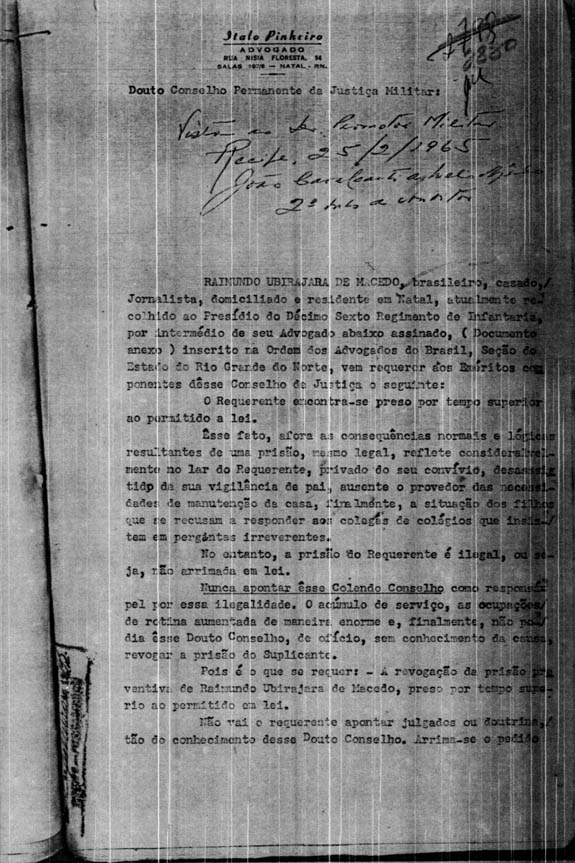 Italo Pinheiro
ADVOGADO
RUA NISIA FLORESTA, 94
SALAS 107/8 — NATAL - RN.
Douto Conselho Permanente da Justiça Militar:
Vista ao Dr. Promotor Militar
Recife, 25/2/1965
João
RAIMUNDO UBIRAJARA DE MACEDO, brasileiro, casado,/
Jornalista, domiciliado e residente em Natal, atualmente re
colhido ao Presídio do Décimo Sexto Regimento de Infantaria,
por intermédio de seu Advogado abaixo assinado, ( Documento
anexo ) inscrito na Ordem dos Advogados do Brasil, Seção do
Estado do Rio Grande do Norte, vem requerer aos Eméritos com
ponentes dêsse Conselho de Justiça o seguinte:
O Requerente encontra-se preso por tempo superior
ao permitido a lei.
Êsse fato, afora as consequências normais e lógicas
resultantes de uma prisão, mesmo legal, reflete consideravel-
mente no lar do Requerente, privado do seu convívio, desassis
tidp da sua vigilância de pai, ausente o provedor das necessi
dades de manutenção da casa, finalmente, a situação dos filhos
que se recusam a responder aos colegas de colégios que insis-/
tem em pergûntas irreverentes.
No entanto, a prisão do Requerente é ilegal, ou se-
ja, não arrimada em lei.
Nunca apontar êsse Colendo Conselho como responsá
pel por essa ilegalidade. O acúmulo de serviço, as ocupações/
de rotina aumentada de maneira enorme e, finalmente, não po/
dia êsse Douto Conselho, de ofício, sem conhecimento da causa,
revogar a prisão do Suplicante.
Pois é o que se requer: - A revogação da prisão pre
ventiva de Raimundo Ubirajara de Macedo, preso por tempo supe-
rio ao permitido em lei.
Não vai o requerente apontar julgados ou doutrina,/
tão do conhecimento desse Douto Conselho. Arrima-se o pedido